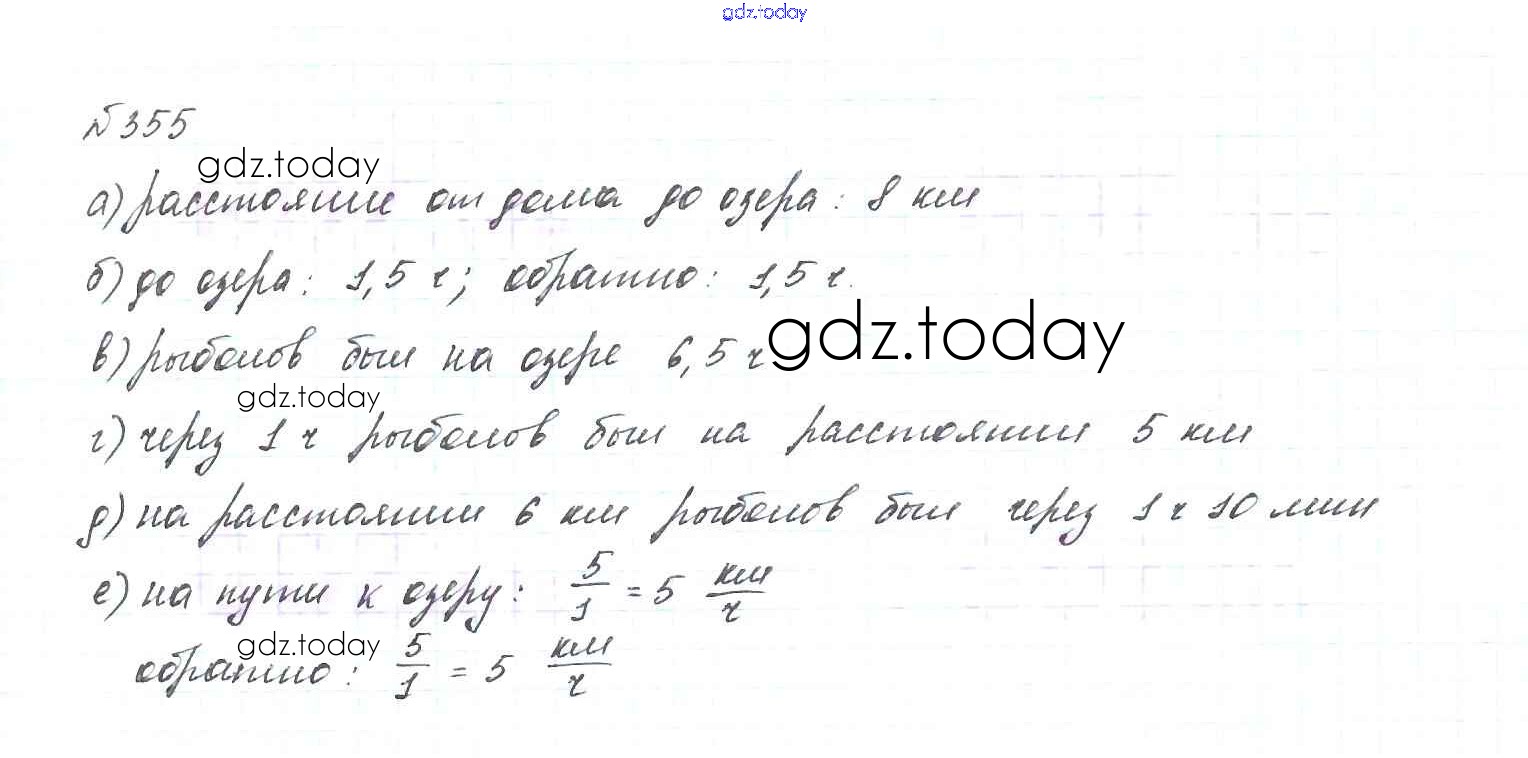 gdz.today
№355
gdz.today
а) расстояние от дома до озера: 8 км
б) до озера: 1,5 ч; обратно: 1,5 ч.
в) рыболов был на озере 6,5 ч
gdz.today
gdz.today
г) через 1 ч рыболов был на расстоянии 5 км
д) на расстоянии 6 км рыболов был через 1 ч 10 мин
е) на пути к озеру: 5/1 = 5 км/ч
gdz.today
обратно: 5/1 = 5 км/ч